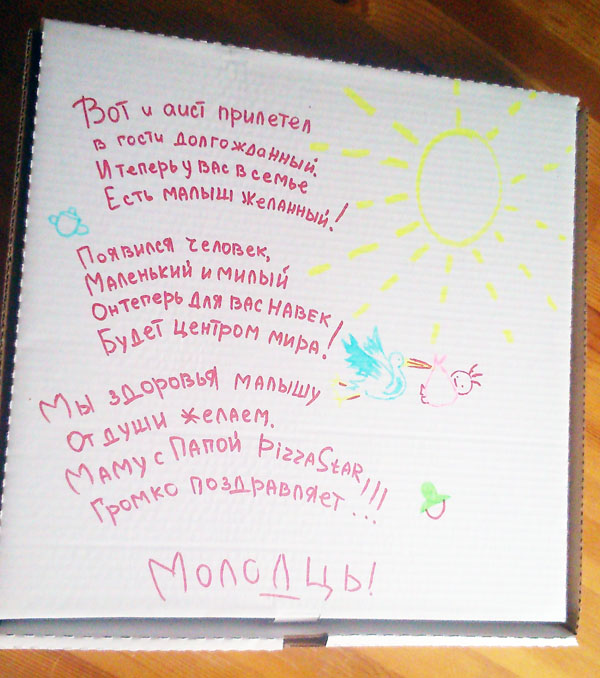 Вот и аист прилетел
в гости долгожданный.
И теперь у вас в семье
Есть малыш желанный!
Появился человек,
Маленький и милый
Он теперь для вас навек
Будет центром мира!
Мы здоровья малышу
От души желаем.
Маму с Папой PizzaStar
Громко поздравляет...!!!
МолоДць!